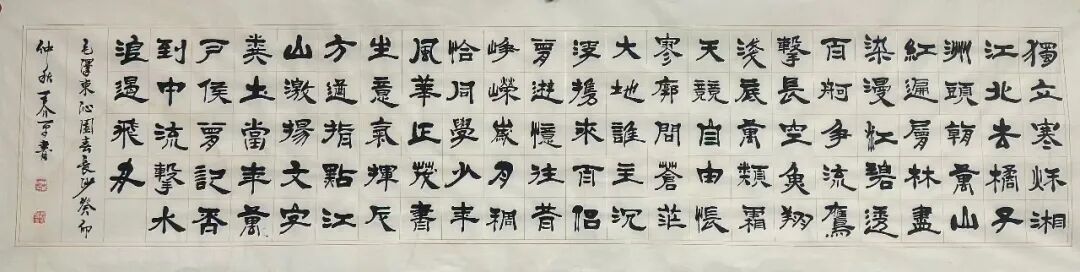 獨立寒秋湘
江北去橘子
洲頭看萬山
紅遍層林盡
染漫江碧透
百舸爭流鷹
擊長空魚翔
淺底萬類霜
天競自由悵
寥廓問蒼茫
大地誰主沉
浮攜來百侶
曾遊憶往昔
崢嶸歲月稠
恰同學少年
風華正茂書
生意氣揮斥
方遒指點江
山激揚文字
糞土當年萬
戶侯曾記否
到中流擊水
浪遏飛舟
毛澤東沁園春長沙癸卯
仲秋書